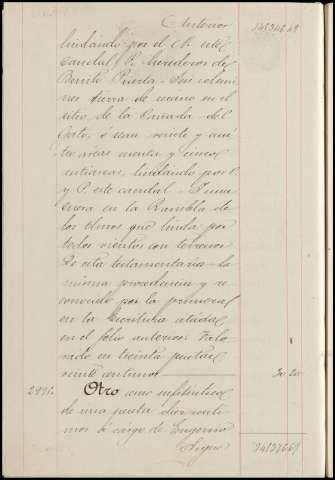 Anterior 34534649
lindando por el N. este
caudal, P. herederos de
Benito Puerta - Seis celemi-
nes tierra de secano en el
sitio de la Cañada del
Gato, ó sean veinte y
áreas y cinco
centiáreas, lindando por
y P. este caudal - Y una
en la Rambla de
los Olmos que linda por
todos vientos con terrenos
de esta testamentaria - la
misma procedencia y re-
conocido por la primera
en la Escritura citada
en el folio anterior. Valo-
rado en treinta pesetas
veinte centimos 30 20
2991. Otro como enfiteutico
de una peseta diez centi-
mos á cargo de Eugenio
34537669